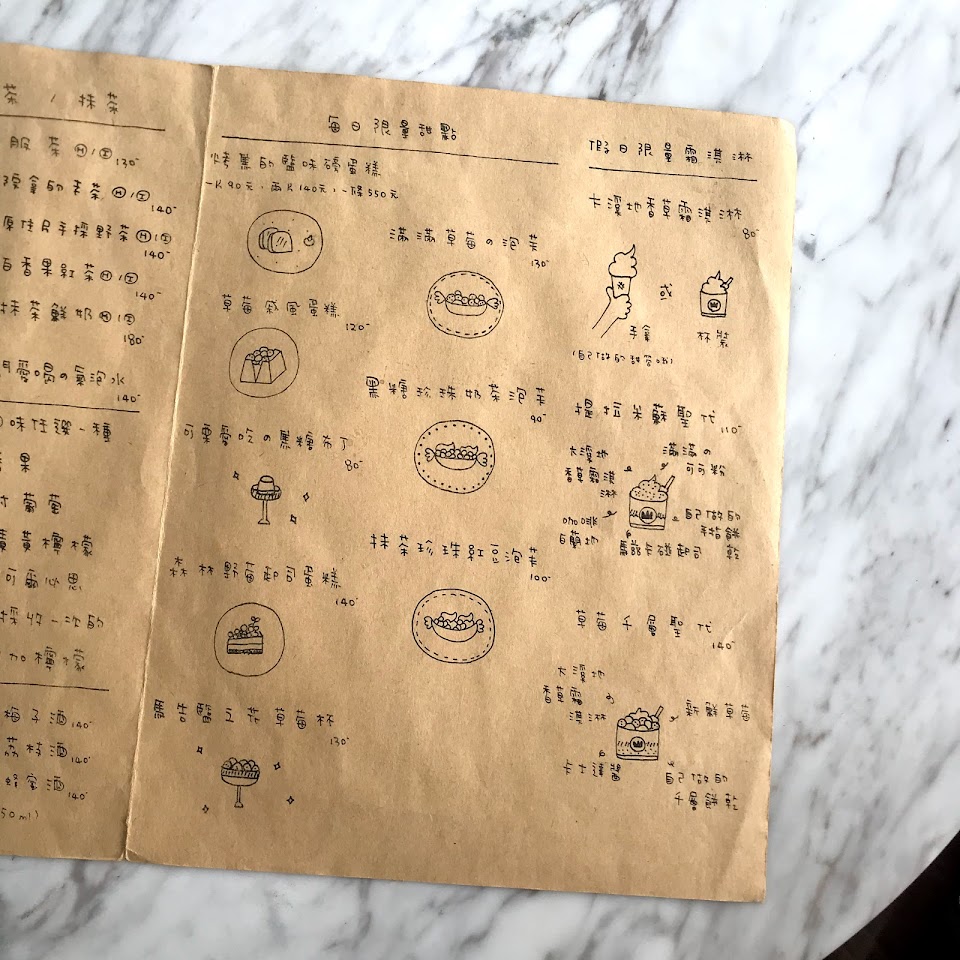 茶 / 抹茶
服茶 Ⓗ/Ⓘ
130-
抹茶 Ⓗ/Ⓘ
140-
原住民手採野茶 Ⓗ/Ⓘ
140-
百香果紅茶 Ⓗ/Ⓘ
140-
抹茶鮮奶 Ⓗ/Ⓘ
180-
愛喝の氣泡水
140-
味任選一種
果
葡萄
檸檬
可爾必思
採收一次的
加檸檬
梅子酒 140-
荔枝酒 140-
蜂蜜酒 140-
50ml)
每日限量甜點
烤焦的鹽味磅蛋糕
一片90元,兩片140元,一條550元
草莓戚風蛋糕
120-
可東愛吃の焦糖布丁
80-
森林野莓起司蛋糕
140-
草莓杯
130-
滿滿草莓の泡芙
130-
黑糖珍珠奶茶泡芙
90-
抹茶珍珠紅豆泡芙
100-
假日限量霜淇淋
大溪地香草霜淇淋
80-
或
手拿
杯裝
(自己做的甜筒哦)
提拉米蘇聖代
110-
大溪地
香草霜淇
淋
滿滿の
可可粉
自己做的
手指餅
乾
馬斯卡彭起司
草莓千層聖代
140-
大溪地
香草霜
淇淋
新鮮草莓
卡士達醬
自己做的
千層餅乾